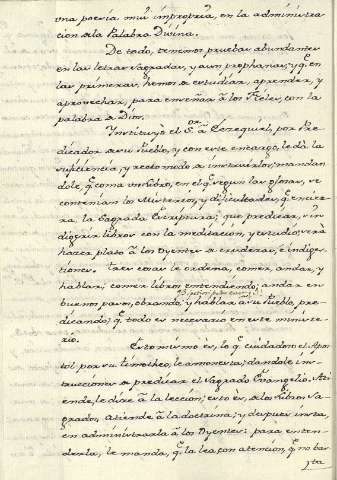 una poesía mui impropria, en la administra
cion de la Palabra Divina.
De todo, tenemos pruebas abundantes
en las letras sagradas, y aun prophanas; y q.e en
las primeras, hemos de estudiar, aprender, y
aprovechar, para enseñar à los Fieles, con la
palabra de Dios.
Instituyò el S.or à Ezequiel, por Pre
dicador de su Pueblo, y con este encargo, le dà la
suficiencia, y el modo de instruirlos, mandan
dole, q.e coma un libro, en el q.e segun las glosas, se
contenian los Misterios, y dificultades, q.e encier
ra, la Sagrada Escriptura; que predicar, sin
digerir libros con la meditacion, y estudio, serà
hazer plato à los Oyentes de crudezas, è indiges-
tiones. Tres cosas le ordena, comer, andar, y
hablar; comer libros entendiendo; andar en
buenos pasos, obrando; y hablar à su Pueblo, pre
dicando; q.e todo es necesario en este ministe
rio.
Esto mismo es, lo q.e cuidadoso el Apos
tol, por su Timotheo, le amonesta; dandole ins
trucciones de predicar el Sagrado Evangelio. Ati
ende, le dice à la leccion; esto es, de los libros Sa
grados, atiende à la doctrina; y despues insta,
en administrarla à los Oyentes: para enten
derla, le manda, q.e la lea con atencion, q.e no bas
ta